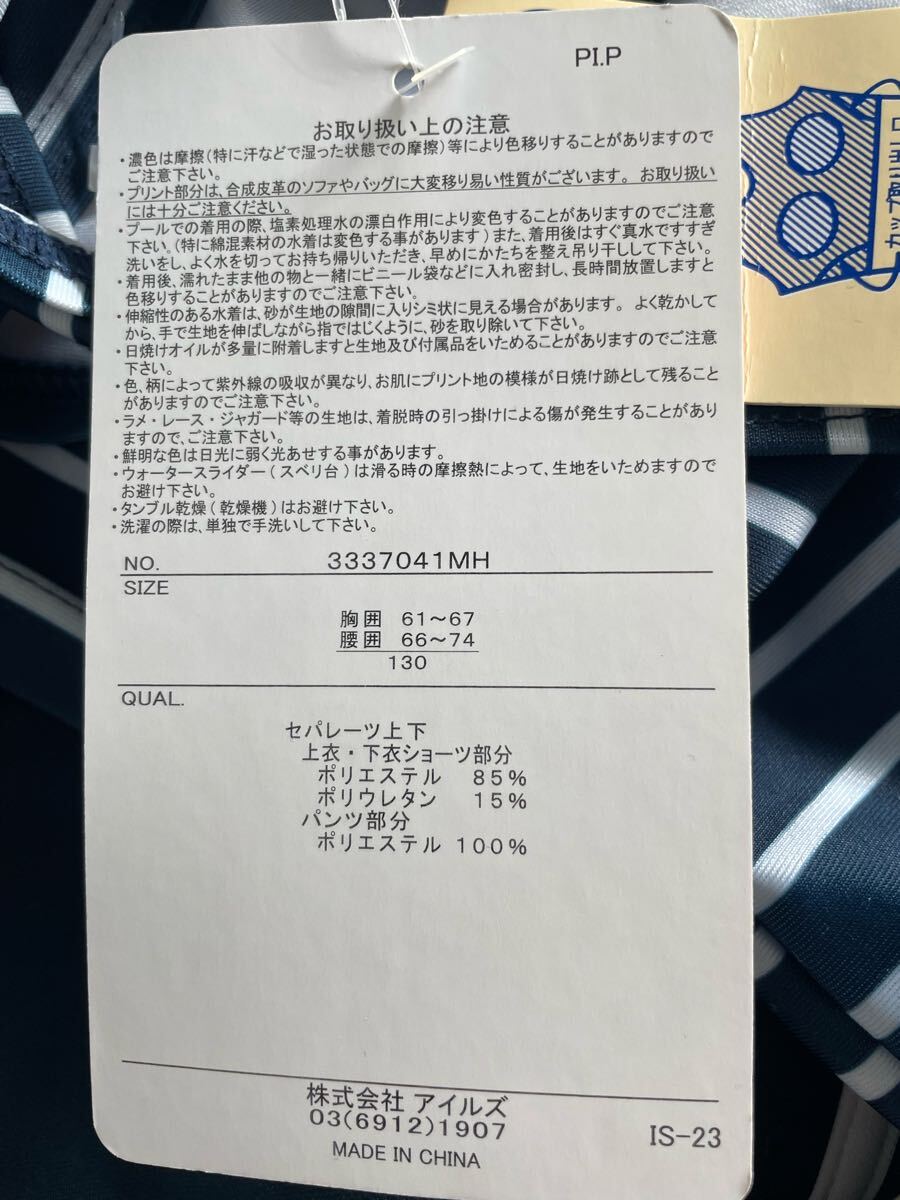 PI.P
お取り扱い上の注意
・濃色は摩擦(特に汗などで湿った状態での摩擦)等により色移りすることがありますので
ご注意下さい。
・プリント部分は、合成皮革のソファやバッグに大変移り易い性質がございます。 お取り扱い
には十分ご注意ください。
・プールでの着用の際、塩素処理水の漂白作用により変色することがありますのでご注意
下さい。(特に綿混素材の水着は変色する事があります)また、着用後はすぐ真水ですすぎ
洗いをし、よく水を切ってお持ち帰りいただき、早めにかたちを整え吊り干しして下さい。
・着用後、濡れたまま他の物と一緒にビニール袋などに入れ密封し、長時間放置しますと
色移りすることがありますのでご注意下さい。
・伸縮性のある水着は、砂が生地の隙間に入りシミ状に見える場合があります。 よく乾かして
から、手で生地を伸ばしながら指ではじくように、砂を取り除いて下さい。
・日焼けオイルが多量に附着しますと生地及び付属品をいためることがありますのでご注意
下さい。
・色、柄によって紫外線の吸収が異なり、お肌にプリント地の模様が日焼け跡として残ること
がありますのでご注意下さい。
・ラメ・レース・ジャガード等の生地は、着脱時の引っ掛けによる傷が発生することがあり
ますので、ご注意下さい。
・鮮明な色は日光に弱く光あせする事があります。
・ウォータースライダー(スベリ台)は滑る時の摩擦熱によって、生地をいためますので
お避け下さい。
・タンブル乾燥(乾燥機)はお避け下さい。
・洗濯の際は、単独で手洗いして下さい。
NO. 3337041MH
SIZE
胸囲 61~67
腰囲 66~74
130
QUAL.
セパレーツ上下
上衣・下衣ショーツ部分
ポリエステル 85%
ポリウレタン 15%
パンツ部分
ポリエステル 100%
株式会社 アイルズ
03(6912)1907
MADE IN CHINA
IS-23